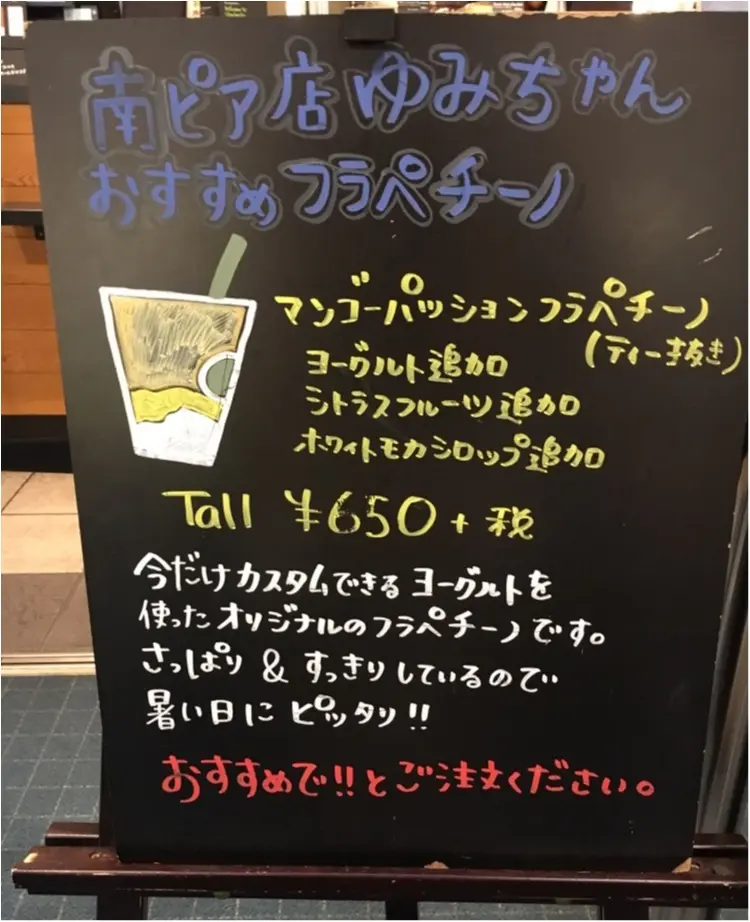 南ピア店ゆみちゃん
おすすめフラペチーノ
マンゴーパッションフラペチーノ
(ティー抜き)
ヨーグルト追加
シトラスフルーツ追加
ホワイトモカシロップ追加
Tall ¥650+税
今だけカスタムできるヨーグルトを
使ったオリジナルのフラペチーノです。
さっぱり & すっきりしているので
暑い日にピッタリ!!
おすすめで!!とご注文ください。